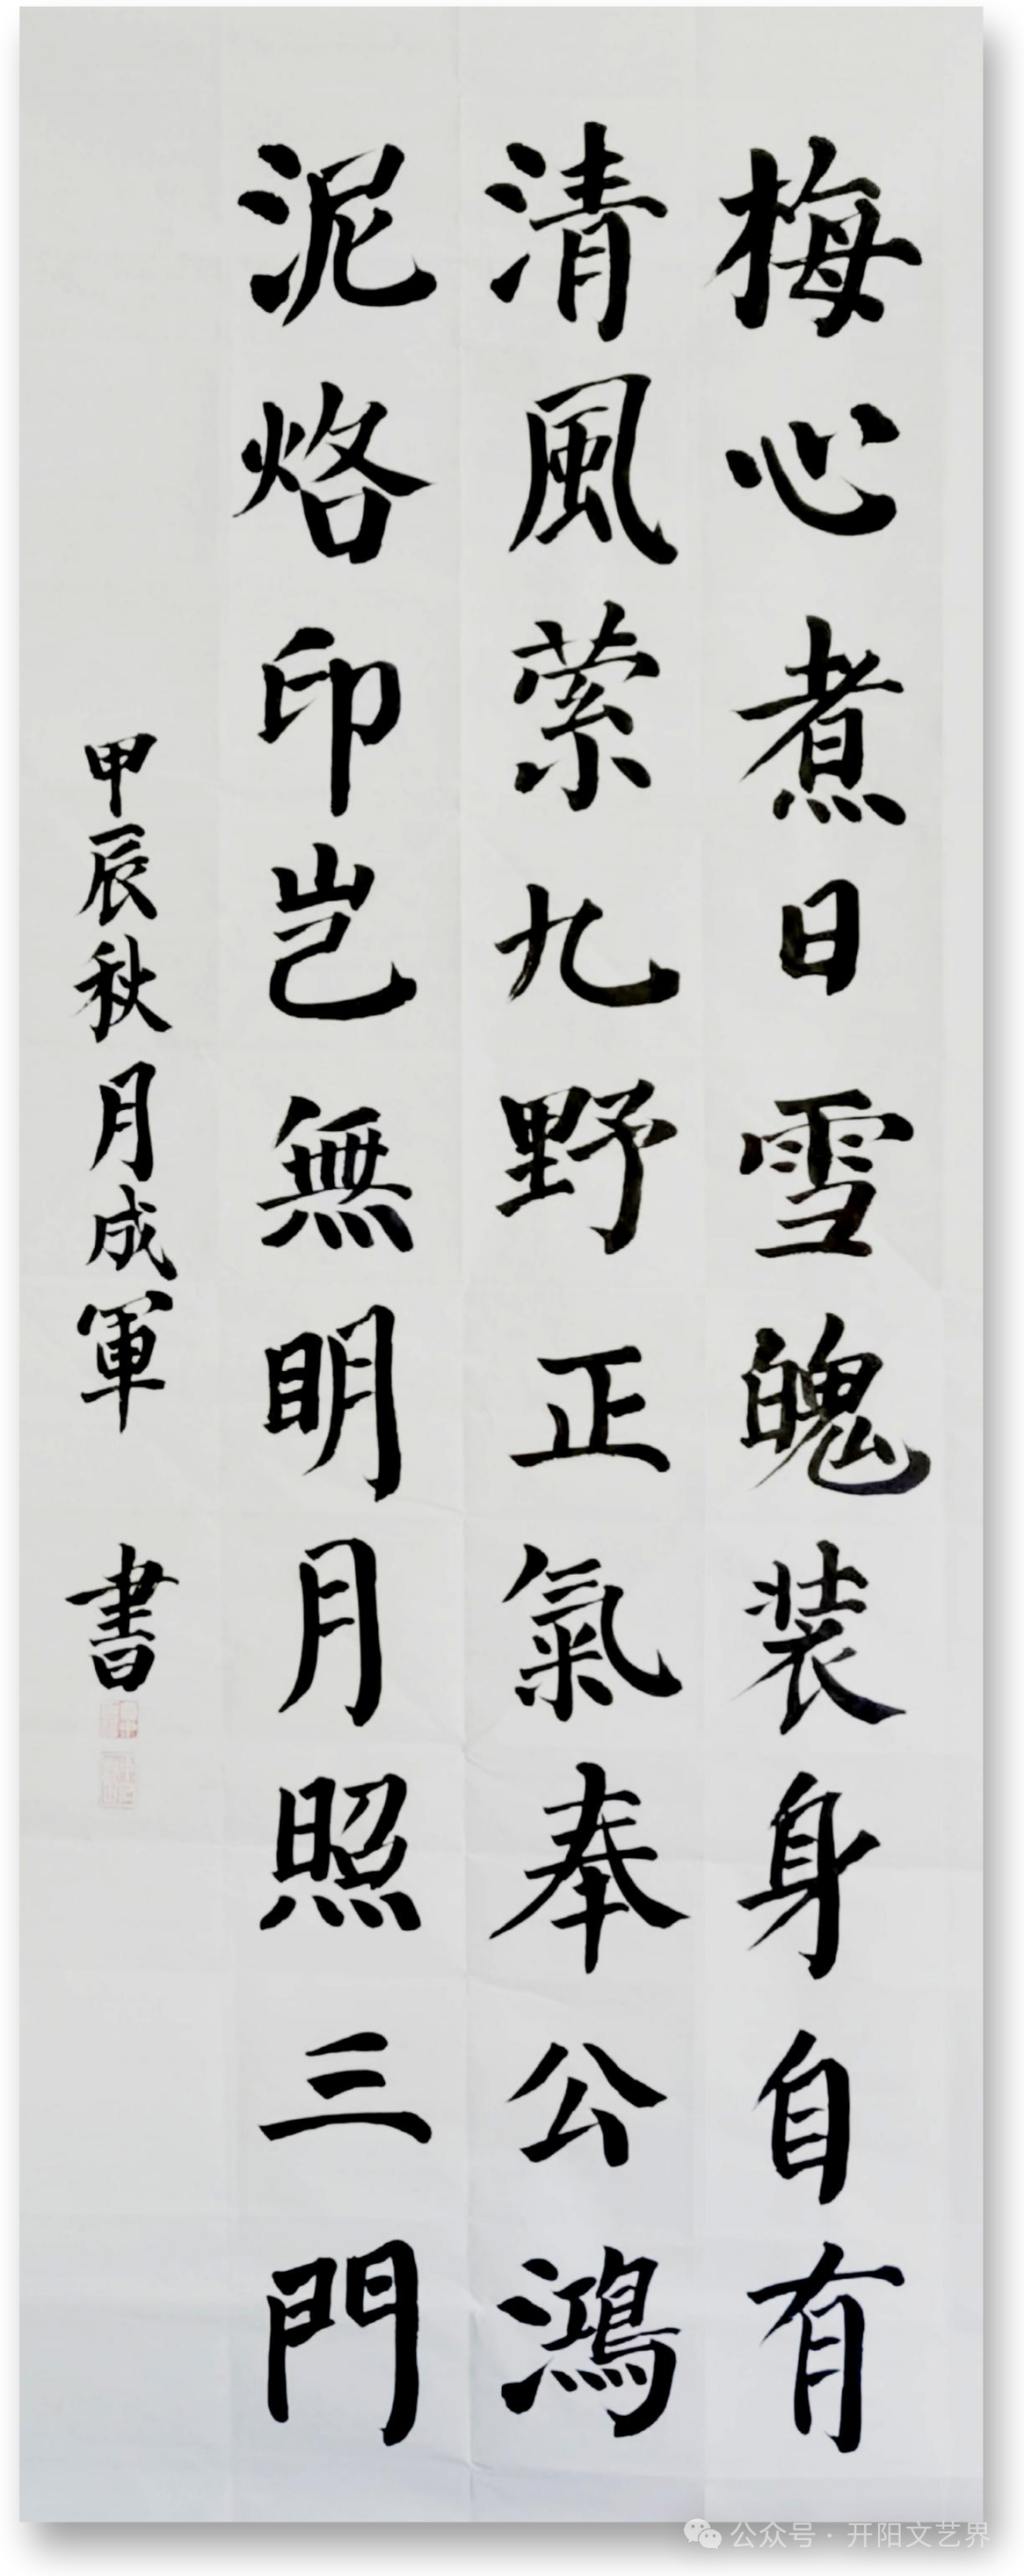 梅心煮日雪魄装身自有
清風萦九野正氣奉公鴻
泥烙印岂無明月照三門
甲辰秋月成軍書
公众号·开阳文艺界